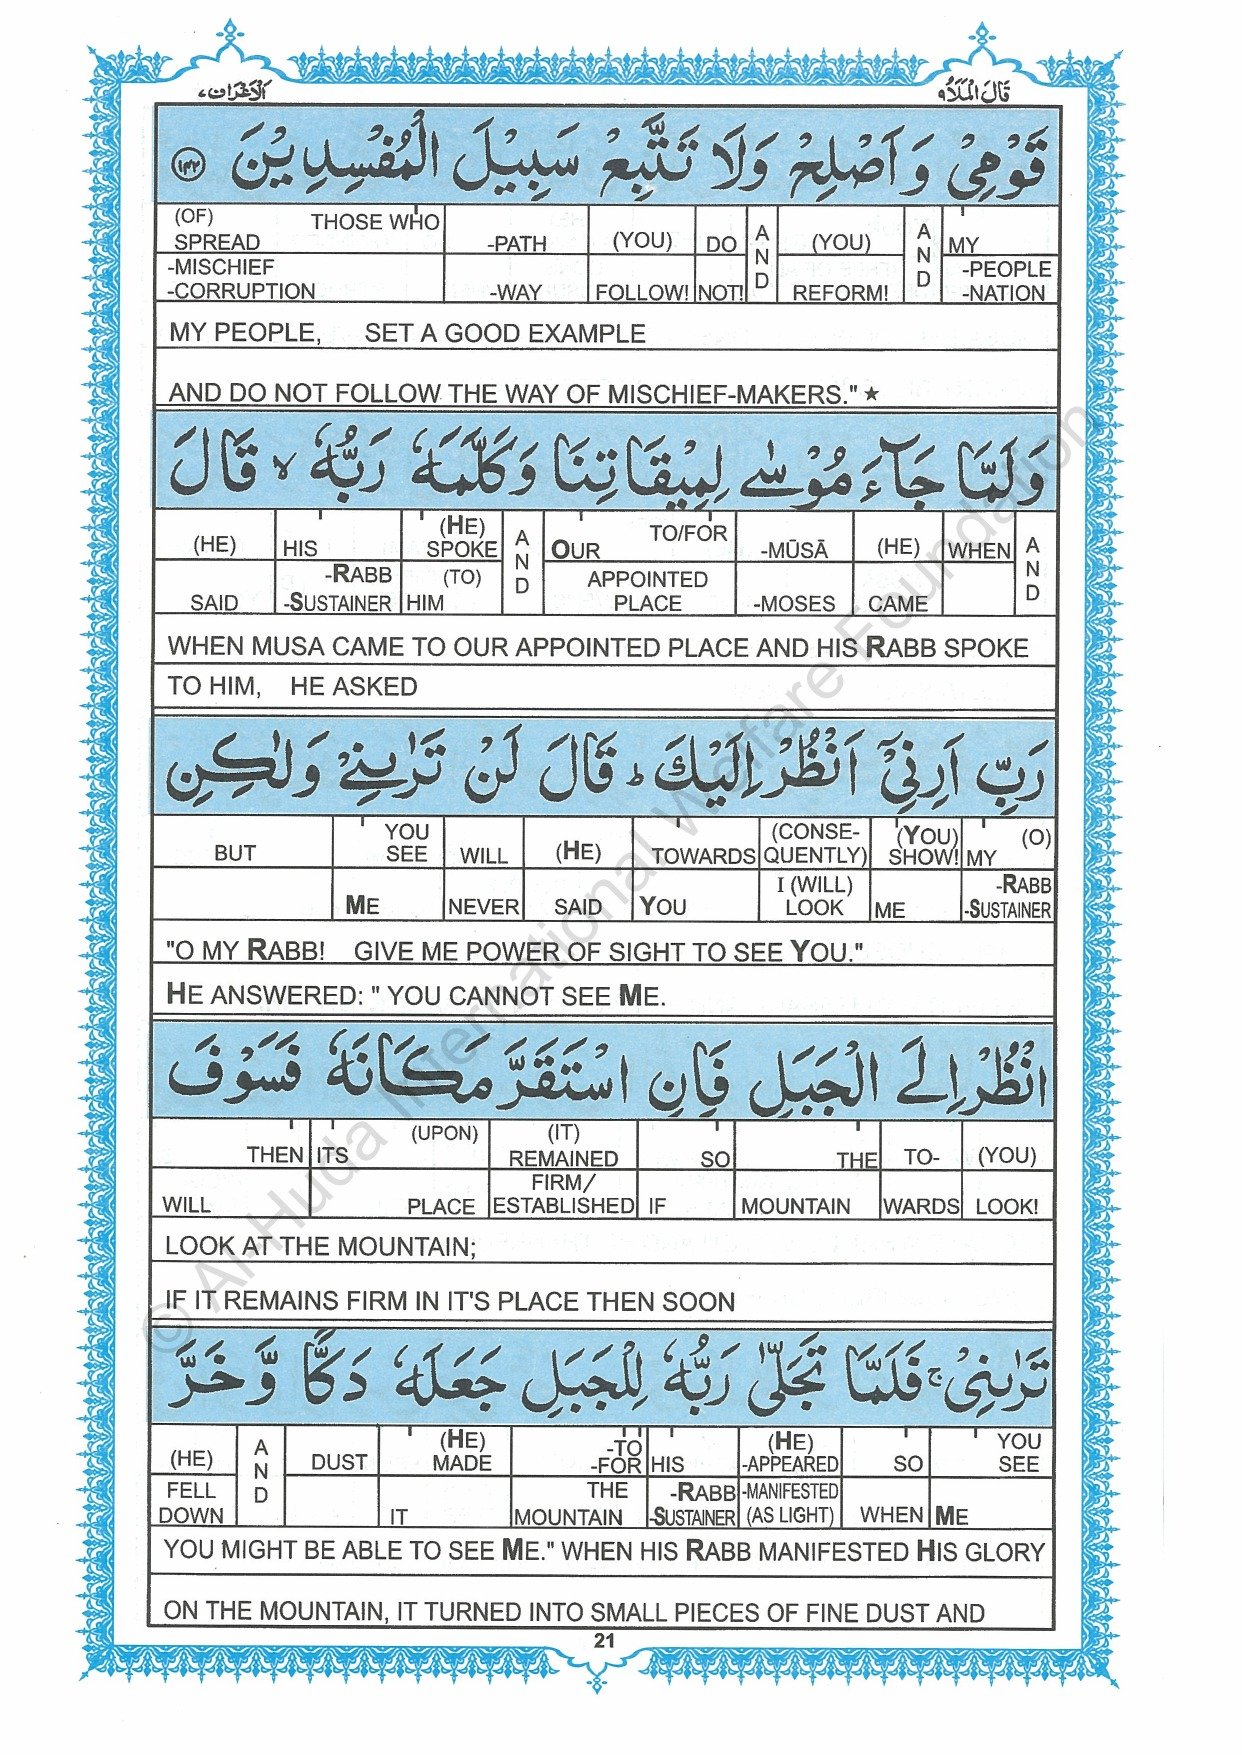 قَالَ الْمَلَاُ ٩
الْاَعْرَاف ٧
قَوْمِیْ وَ اَصْلِحْ وَلَا تَتَّبِعْ سَبِيْلَ الْمُفْسِدِيْنَ ﴿١٤٢﴾
(OF) THOSE WHO SPREAD -MISCHIEF -CORRUPTION | -PATH -WAY | (YOU) FOLLOW! | DO NOT! | AND | (YOU) REFORM! | AND | MY -PEOPLE -NATION
MY PEOPLE, SET A GOOD EXAMPLE
AND DO NOT FOLLOW THE WAY OF MISCHIEF-MAKERS." ★
وَلَمَّا جَآءَ مُوْسٰى لِمِيْقَاتِنَا وَكَلَّمَهٗ رَبُّهٗ ۙ قَالَ
(HE) SAID | HIS -RABB -SUSTAINER | (HE) SPOKE (TO) HIM | AND | TO/FOR OUR APPOINTED PLACE | -MŪSĀ -MOSES | (HE) CAME | WHEN | AND
WHEN MUSA CAME TO OUR APPOINTED PLACE AND HIS RABB SPOKE
TO HIM, HE ASKED
رَبِّ اَرِنِیْٓ اَنْظُرْ اِلَيْكَ ؕ قَالَ لَنْ تَرٰىنِیْ وَلٰكِنِ
BUT | YOU SEE ME | WILL NEVER | (HE) SAID | TOWARDS YOU | (CONSE-QUENTLY) I (WILL) LOOK | (YOU) SHOW! ME | (O) MY -RABB -SUSTAINER
"O MY RABB! GIVE ME POWER OF SIGHT TO SEE YOU."
HE ANSWERED: " YOU CANNOT SEE ME.
انْظُرْ اِلَى الْجَبَلِ فَاِنِ اسْتَقَرَّ مَكَانَهٗ فَسَوْفَ
THEN WILL | (UPON) ITS PLACE | (IT) REMAINED FIRM/ ESTABLISHED | SO IF | THE MOUNTAIN | TO-WARDS | (YOU) LOOK!
LOOK AT THE MOUNTAIN;
IF IT REMAINS FIRM IN IT'S PLACE THEN SOON
تَرٰىنِیْ ۚ فَلَمَّا تَجَلّٰى رَبُّهٗ لِلْجَبَلِ جَعَلَهٗ دَكًّا وَّ خَرَّ
(HE) FELL DOWN | AND | DUST | (HE) MADE IT | -TO -FOR THE MOUNTAIN | HIS -RABB -SUSTAINER | (HE) -APPEARED -MANIFESTED (AS LIGHT) | SO WHEN | YOU SEE ME
YOU MIGHT BE ABLE TO SEE ME." WHEN HIS RABB MANIFESTED HIS GLORY
ON THE MOUNTAIN, IT TURNED INTO SMALL PIECES OF FINE DUST AND
21
© Al-Huda International Welfare Foundation